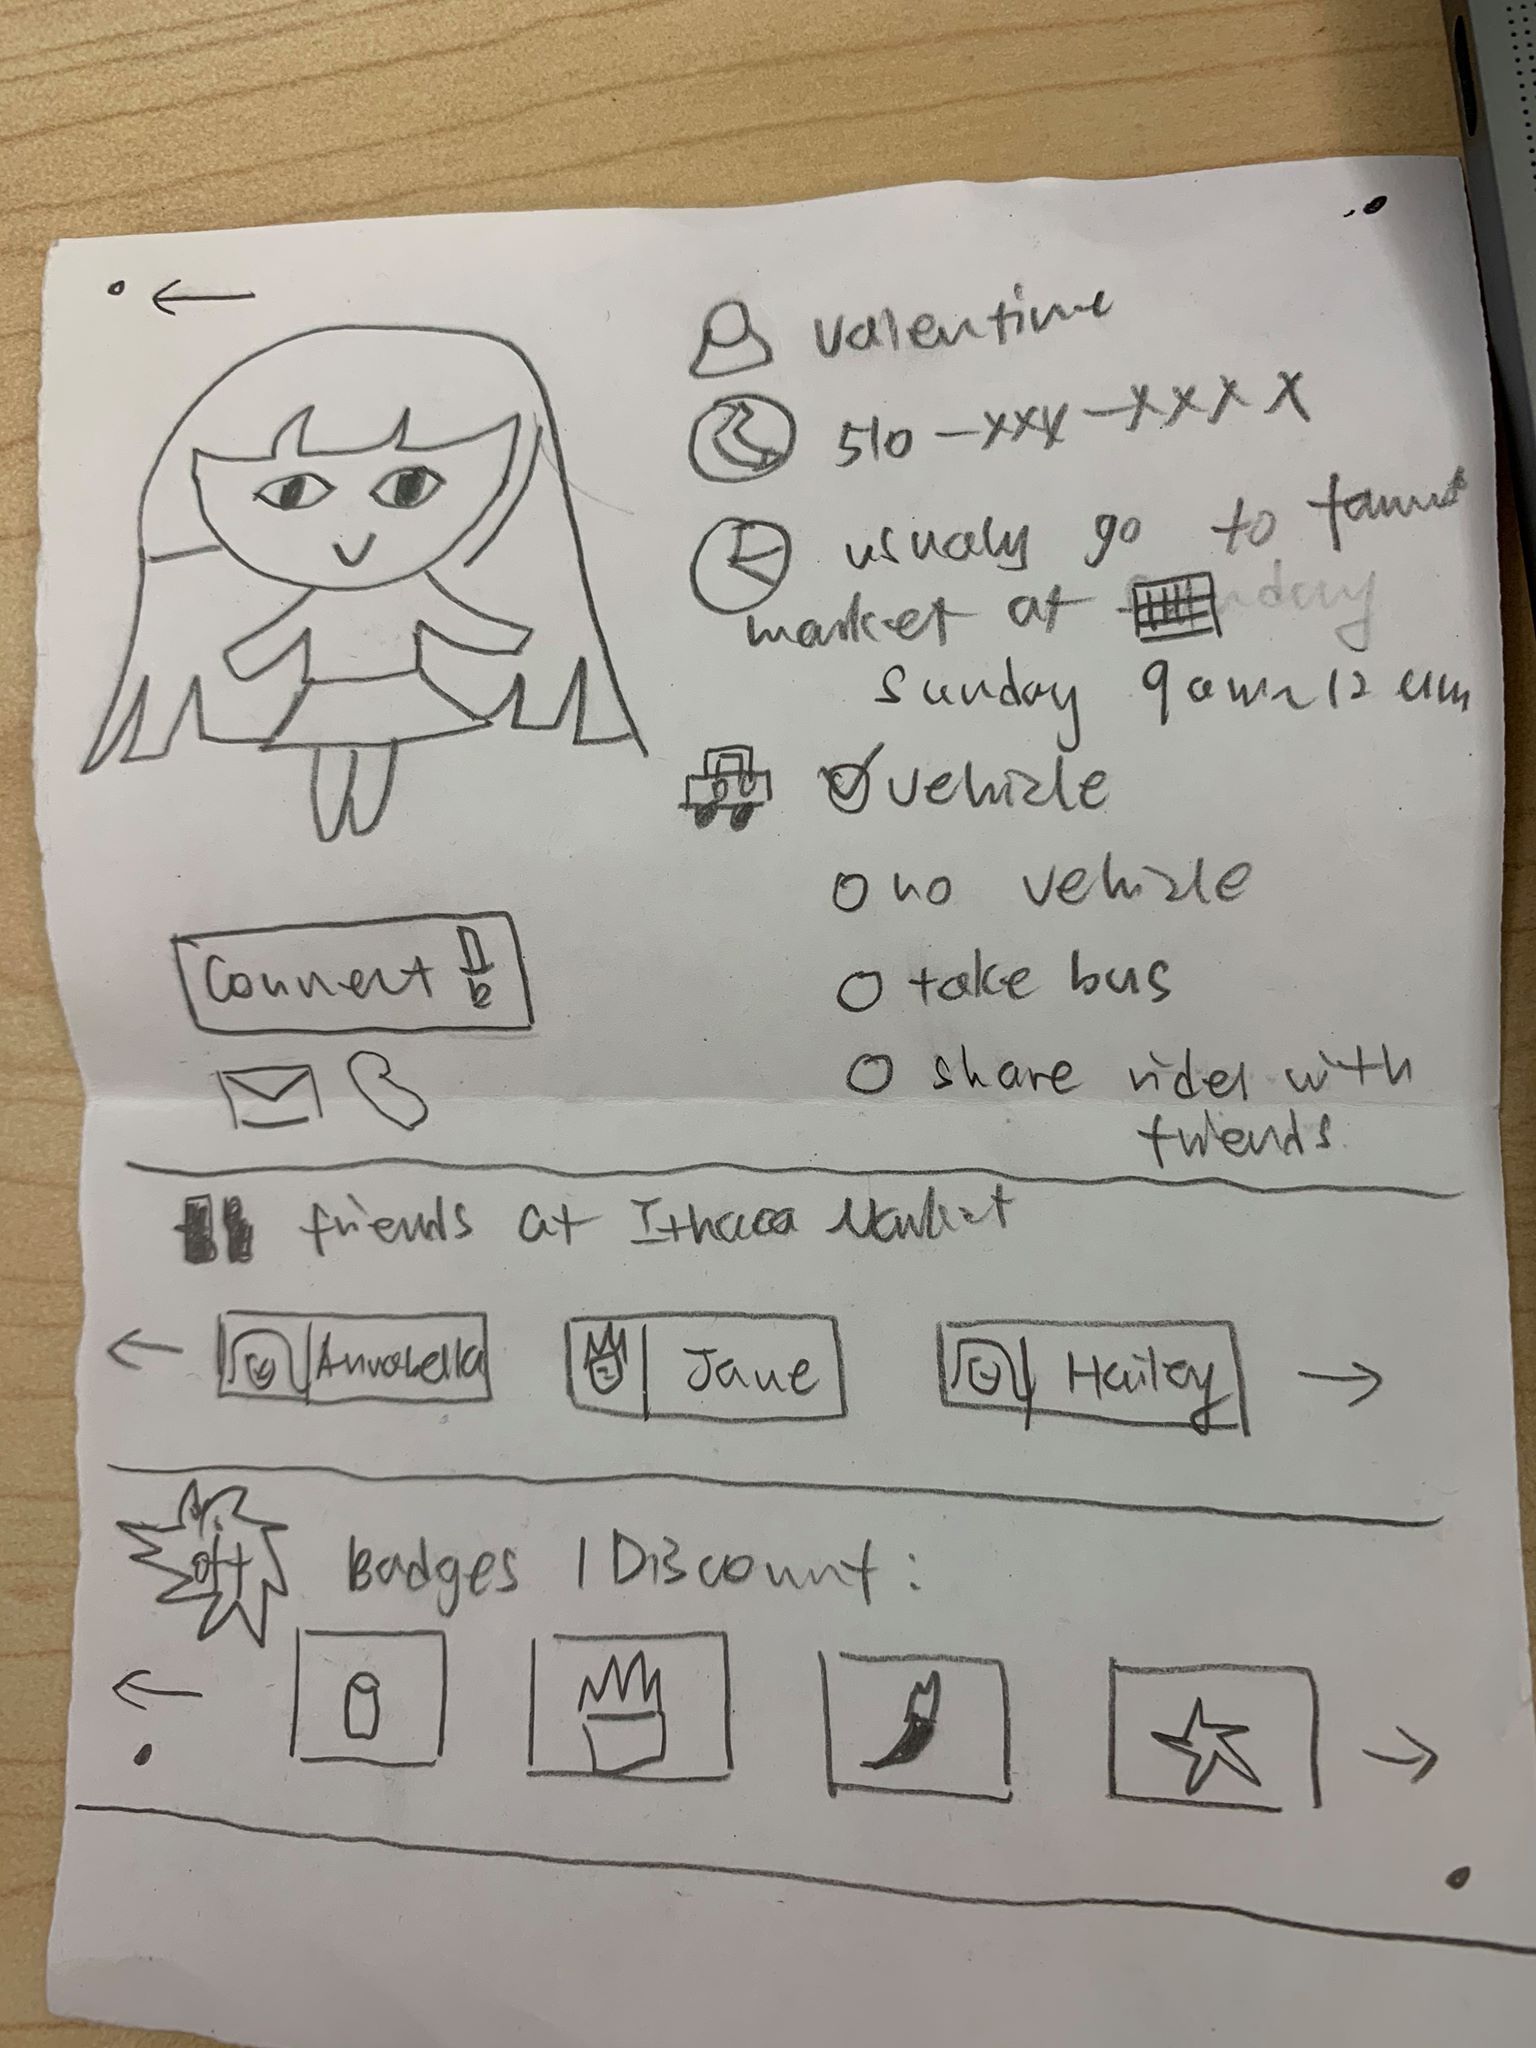 Valentime
510-xxx-xxxx
usualy go to
market at
sunday 9am~12am
vehicle
no vehicle
take bus
share rides with
friends
Connect
friends at Ithaca Market
Annabella
Jane
Hailey
off
Badges / Discount: